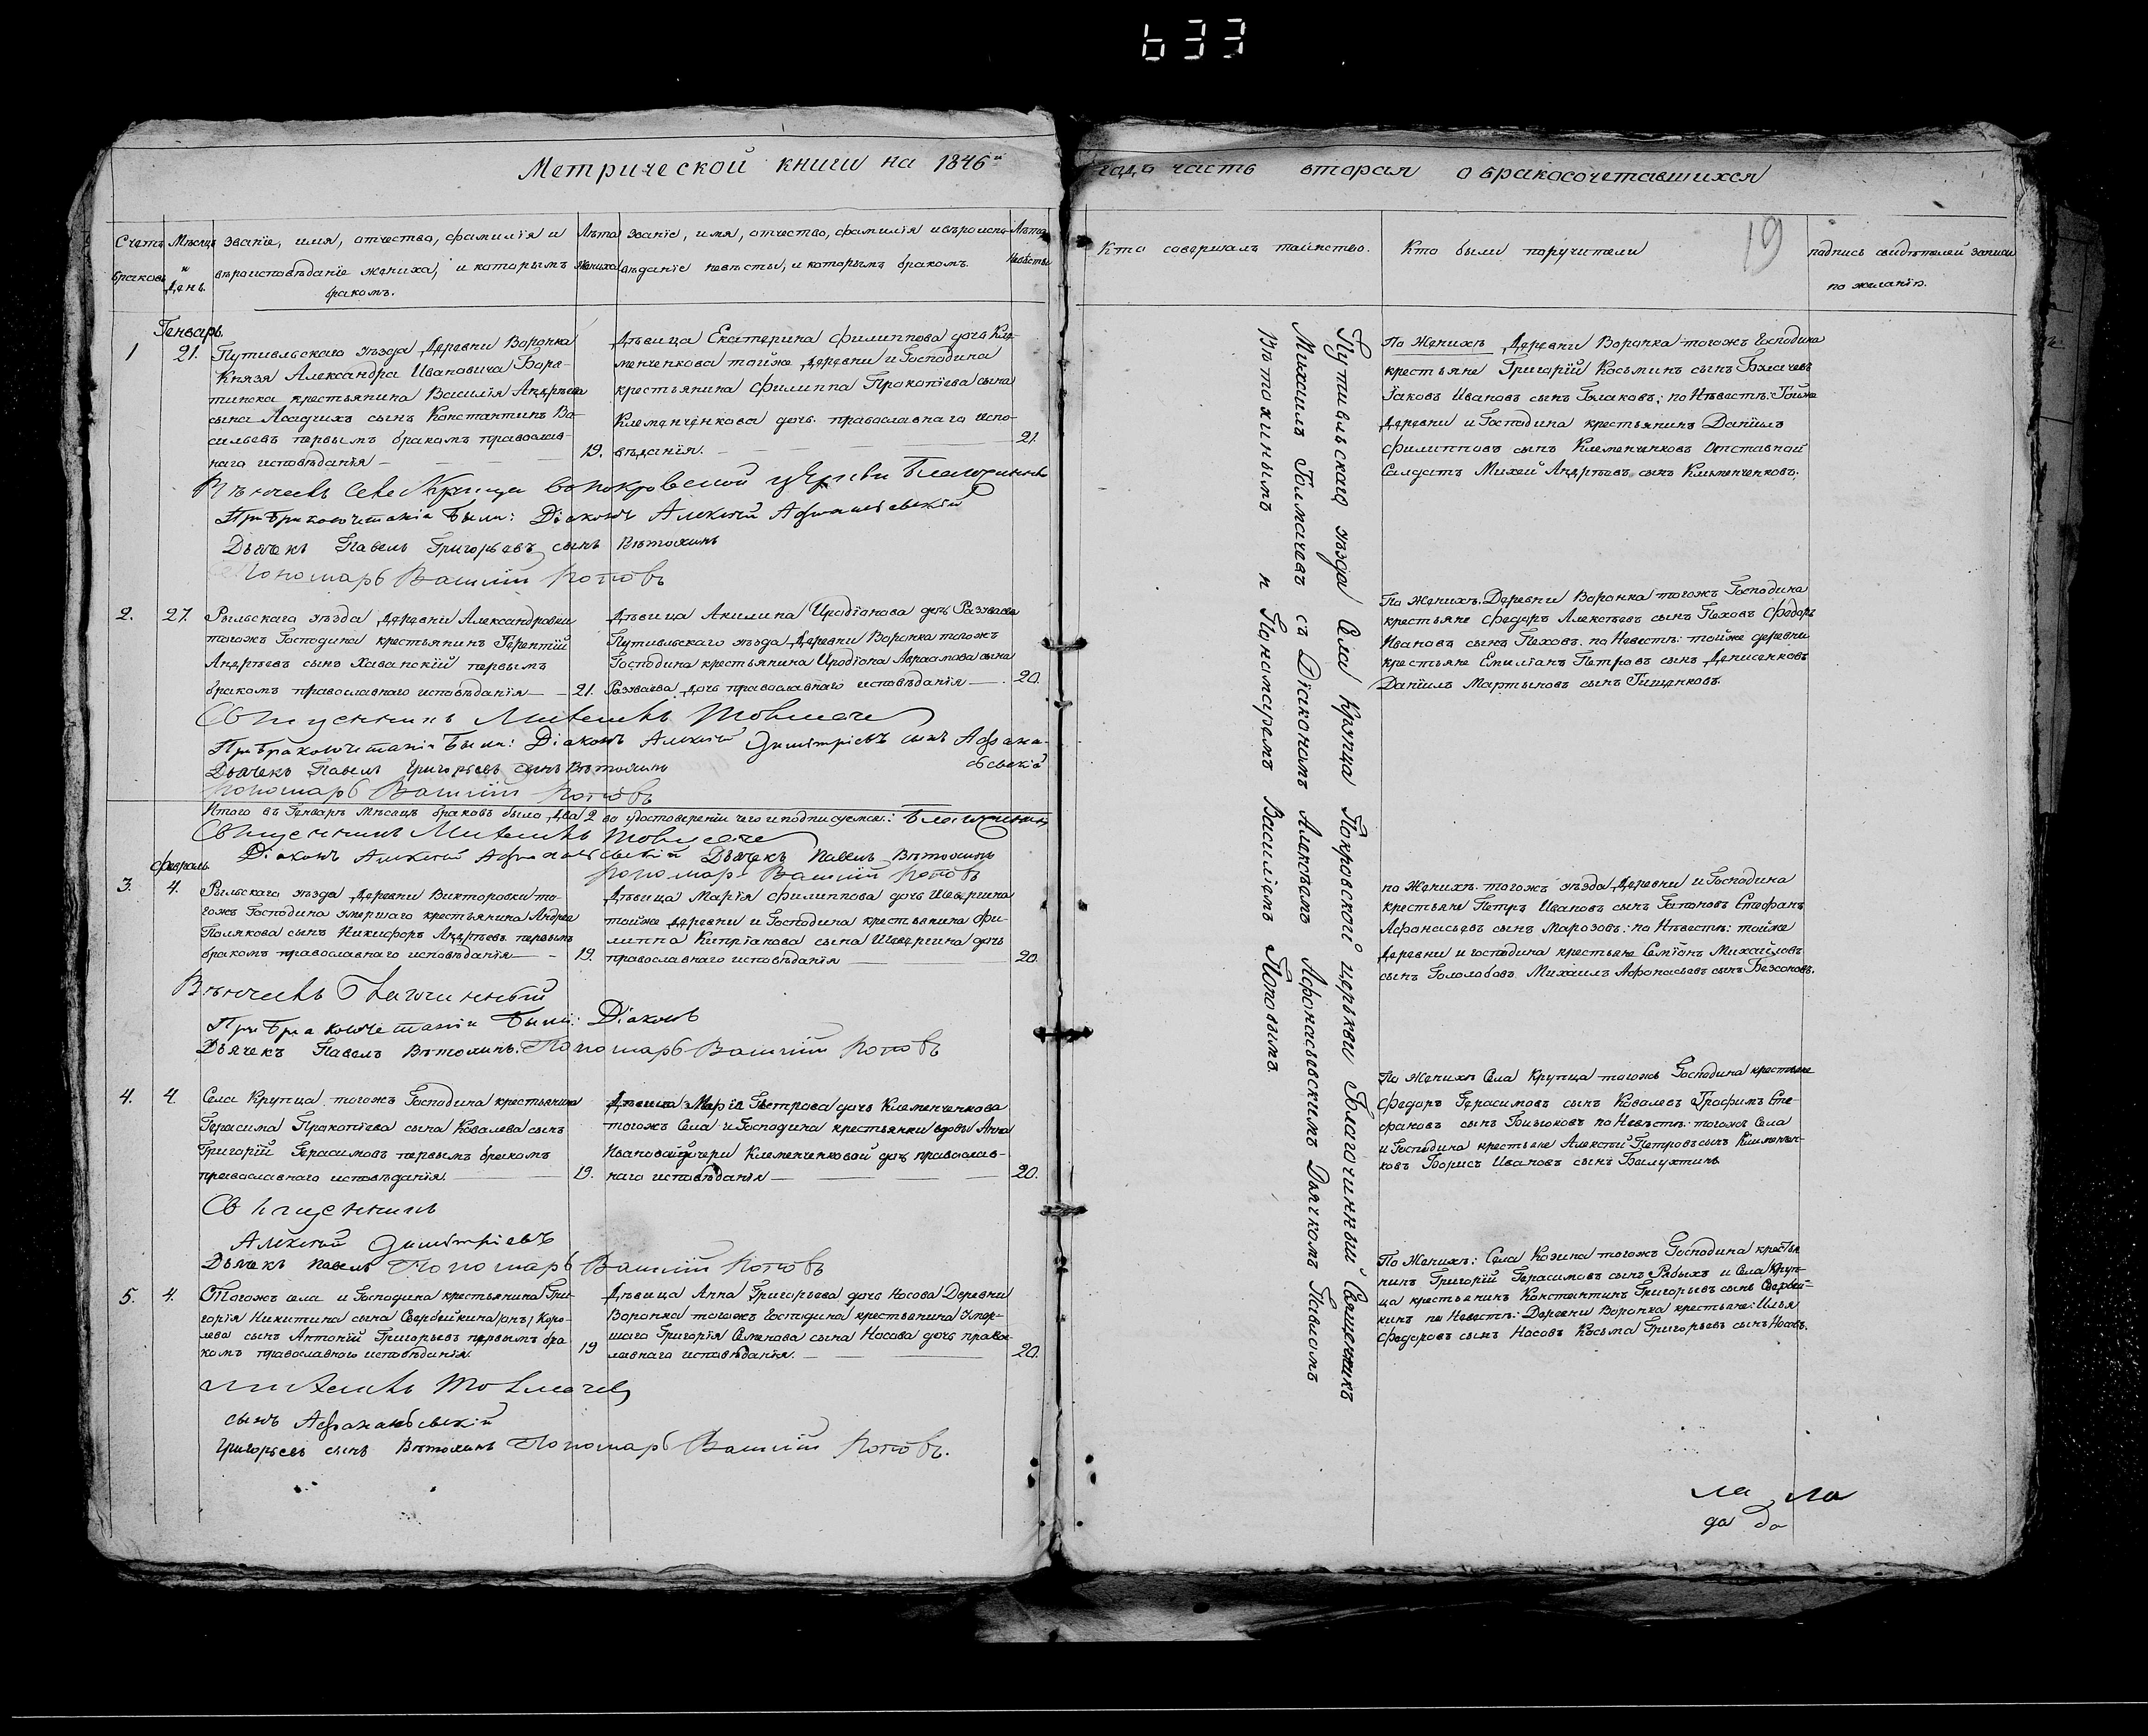 633
Метрической книги на 1846й
годъ часть вторая о бракосочетавшихся
19
Счетъ браковъ
Мѣсяцъ и день
Званіе, имя, отчество, фамилія и
вѣроисповѣданіе жениха, и которымъ
бракомъ.
Лѣта жениха
Званіе, имя, отчество, фамилія и вѣроиспо-
вѣданіе невѣсты, и которымъ бракомъ.
Лѣта невѣсты
Кто совершалъ таинство.
Кто были поручители
подпись свидѣтелей записи
по желанію.
Генварь
1
21.
Путивльскаго уѣзда Деревни Воронка
Князя Александра Ивановича Боря-
тинска крестьянина Василія Андрѣева
сына Асадчихъ сынъ Константинъ Ва-
сильевъ первымъ бракомъ православ-
наго исповѣданія
19.
Дѣвица Екатерина Филиппова дочь Кле-
менченкова тойже деревни и Господина
крестьянина Филиппа Прокопіева сына
Клеменченкова дочь православнаго испо-
вѣданія.
21.
По Женихѣ Деревни Воронка тогожъ Господина
крестьяне Григорій Косьминъ сынъ
Іаковъ Ивановъ сынъ по Нѣвестѣ: Тойже
деревни и Господина крестьянинъ Даніилъ
Филипповъ сынъ Клеменченковъ Отставной
Салдатъ Михей Андрѣевъ сынъ Клеменченковъ;
села Крупца Покровской церкви Благочинный
При Бракосочетаніи Были: Діаконъ Алексѣй Афанасьевскій
Дьячекъ Павелъ Григорьевъ сынъ Вѣтохинъ
Пономарь Василій Поповъ
2.
27.
Рыльскаго уѣзда деревни Александровки
тогожъ Господина крестьянинъ Терентій
Андрѣевъ сынъ Хаванскій первымъ
бракомъ православнаго исповѣданія
21.
Дѣвица Акилина Иродіонова дочь Разуваева
Путивльскаго уѣзда Деревни Воронка тогожъ
Господина крестьянина Иродіона Авраамова сына
Разуваева дочь православнаго исповѣданія
20.
По Женихѣ. Деревни Воронка тогожъ Господина
крестьяне Федоръ Алексѣевъ сынъ Пеховъ Федоръ
Ивановъ сынъ Пеховъ. по Невестѣ: тойже деревни
крестьяне Емиліанъ Петровъ сынъ Денисенковъ
Даніилъ Мартыновъ сынъ Гищенковъ.
Священникъ Михаилъ Толмачевъ
При Бракосочетаніи Были: Діаконъ Алексѣй Димитріевъ сынъ Афана-
сьевскій
Дьячекъ Павелъ Григорьевъ сынъ Вѣтохинъ
Пономарь Василій Поповъ
Итого въ Генварѣ Мѣсяцѣ браковъ было два 2 во удостовереніи чего и подписуемся: Благочинный
Священникъ Михаилъ Толмачевъ
Діаконъ Алексѣй Афанасьевскій Дьячекъ Павелъ Вѣтохинъ
Пономарь Василій Поповъ
Февраль
3.
4.
Рыльскаго уѣзда Деревни Викторовки то-
гожъ Господина умершаго крестьянина Андрея
Полякова сынъ Никифоръ Андрѣевъ первымъ
бракомъ православнаго исповѣданія
19.
Дѣвица Марія Филиппова дочь Шевергина
тойже деревни и Господина крестьянина Фи-
липпа Кипріанова сына Шевергина дочь
православнаго исповѣданія
20.
по Женихѣ. тогожъ уѣзда Деревни и Господина
крестьяне Петръ Ивановъ сынъ Гапоновъ Стефанъ
Афонасьевъ сынъ Марозовъ: по Нѣвестѣ: тойже
деревни и господина крестьяне Семіонъ Михайловъ
сынъ Гололобовъ. Михаилъ Афонасьевъ сынъ Безсоновъ.
Вѣнчалъ Благочинный
При Бракосочетаніи Были: Діаконъ
Дьячекъ Павелъ Вѣтохинъ. Пономарь Василій Поповъ
4.
4.
Села Крупца тогожъ Господина крестьянина
Герасима Прокопіева сына Ковалева сынъ
Григорій Герасимовъ первымъ бракомъ
православнаго исповѣданія.
19.
Дѣвица Марія Петрова дочь Клеменченкова
тогожъ Села и Господина крестьянки вдовы Анны
Ивановой дочери Клеменченковой дочь православ-
наго исповѣданія
20.
По Женихѣ Села Крупца тогожъ Господина крестьяне
Федоръ Герасимовъ сынъ Ковалевъ Трофимъ Сте-
фановъ сынъ по Невѣстѣ: тогожъ Села
и Господина крестьяне Алексѣй Петровъ сынъ Клименчен-
ковъ Борисъ Ивановъ сынъ
Священникъ
Алексѣй Димитріевъ
Дьячекъ Павелъ Пономарь Василій Поповъ
5.
4.
Тогожъ села и Господина крестьянина Гри-
горія Никитина сына Свербейкина, онъ, Коро-
лева сынъ Антоній Григорьевъ первымъ бра-
комъ православнаго исповѣданія.
19
Дѣвица Анна Григорьева дочь Носова Деревни
Воронка тогожъ Господина крестьянина Умер-
шаго Григорія Семенова сына Носова дочь право-
славнаго исповѣданія.
20.
По Женихѣ: Села Козина тогожъ Господина крестья-
нинъ Григорій Герасимовъ сынъ Рябыхъ и Села Круп-
ца крестьянинъ Константинъ Григорьевъ сынъ Свербей-
кинъ по Невестѣ: Деревни Воронка крестьяне: Илья
Федоровъ сынъ Носовъ Косьма Григорьевъ сынъ Носовъ.
Михаилъ Толмачевъ
сынъ Афанасьевскій
Григорьевъ сынъ Вѣтохинъ Пономарь Василій Поповъ.
Путивльскаго уѣзда Села Крупца Покровской церкви Благочинный Священникъ
Михаилъ Толмачевъ съ Діакономъ Алексѣемъ Афонасьевскимъ Дьячкомъ Павломъ
Вѣтохинымъ и Панамаремъ Василіемъ Поповымъ.
ла ла
да да